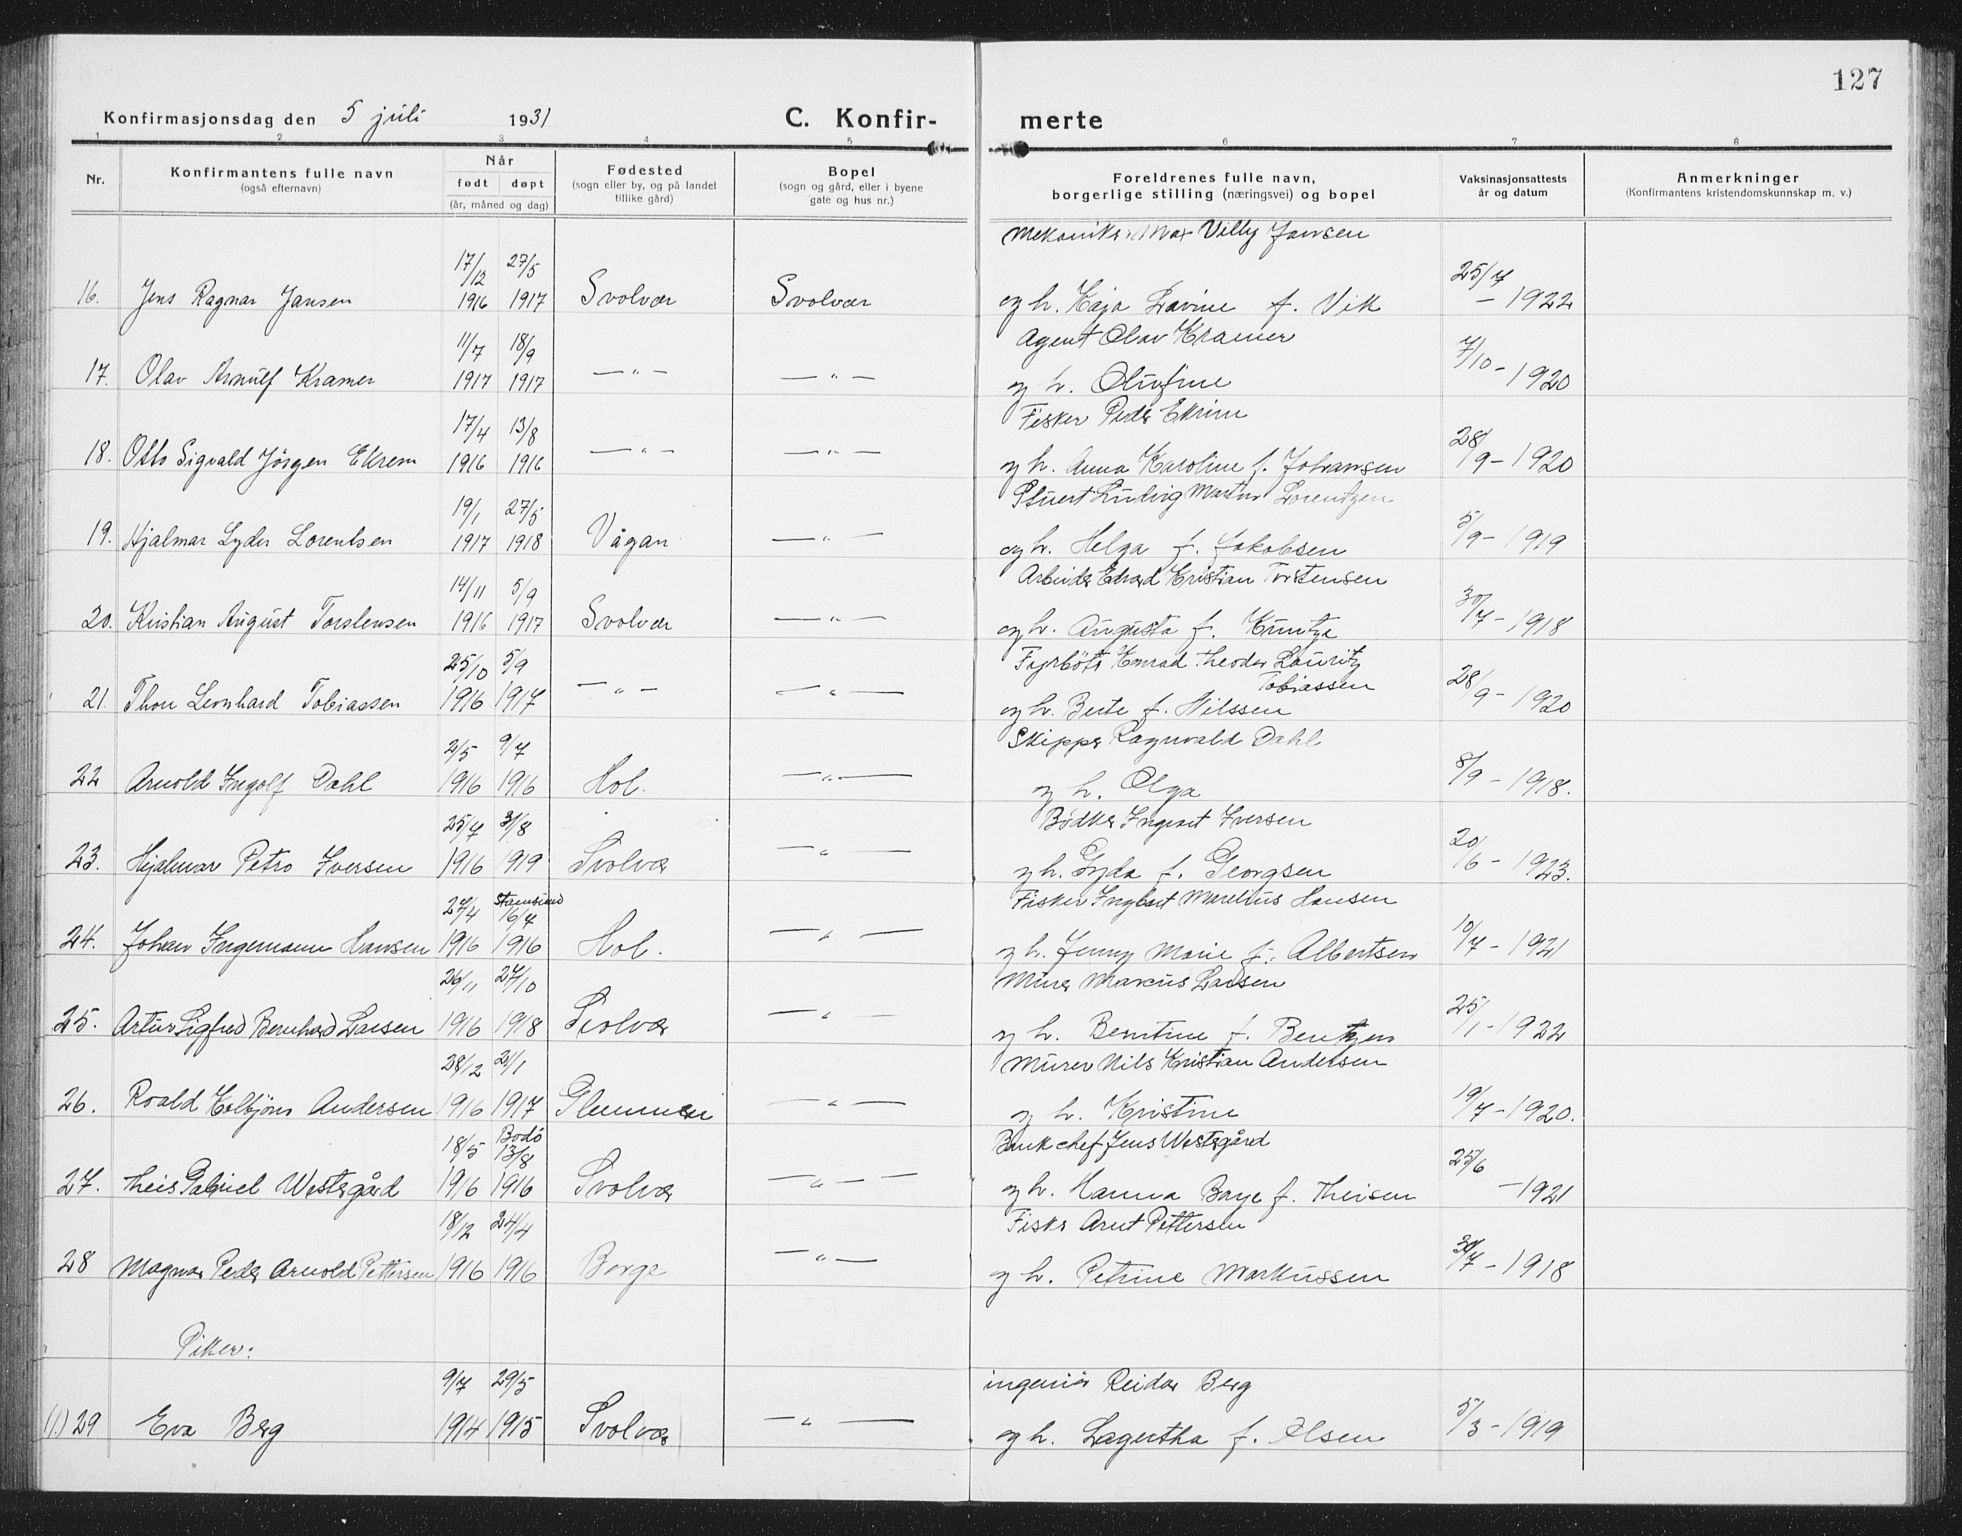 127
Konfirmasjonsdag den 5 juli 1931
C. Konfir- merte
1 2 3 4 5 6 7 8
Nr.
Konfirmantens fulle navn
(også efternavn)
Når
født døpt
(år, måned og dag)
Fødested
(sogn eller by, og på landet
tillike gård)
Bopel
(sogn og gård, eller i byene
gate og hus nr.)
Foreldrenes fulle navn,
borgerlige stilling (næringsvei) og bopel
Vaksinasjonsattests
år og datum
Anmerkninger
(Konfirmantens kristendomskunnskap m. v.)
17/12 27/5 Mekaniker Max Villy Jansen 25/7
16. Jens Ragnar Jansen 1916 1917 Svolvær Svolvær og h. Kaja Lavine f. Vik – 1922
11/7 18/9 Agent Olav Kramer 7/10
17. Olav Arnulf Kramer 1917 1917 — " — — " — og h. Olufine – 1920
17/4 13/8 Fisker Peder Ekrem 28/9
18. Otto Sigvald Jörgen Ekrem 1916 1916 — " — — " — og h. Anna Karoline f. Johansen – 1920
19/1 27/5 Stuert Ludvig Martin Lorentzen 5/9
19. Hjalmar Lyder Lorentsen 1917 1918 Vågan — " — og h. Helga f. Jakobsen – 1919
14/11 5/9 Arbeider Edvard Kristian Torstensen 30/7
20. Kristian August Torstensen 1916 1917 Svolvær — " — og h. Augusta f. Kuntze – 1918
25/10 5/9 Fyrböter Konrad Theodor Lauritz
Tobiassen 28/9
21. Thor Leonhard Tobiassen 1916 1917 — " — — " — og h. Berte f. Nilssen – 1920
2/5 9/7 Skipper Ragnvald Dahl 8/9
22 Arnold Ingolf Dahl 1916 1916 Hol. — " — og h. Olga – 1918.
25/7 31/8 Bødker Ingvart Iversen 20/6
23. Hjalmar Petro Iversen 1916 1919 Svolvær — " — og h. Gyda f. Georgsen – 1923.
27/4 Stamsund 16/7 Fisker Ingbart Marelius Hansen 10/7
24. Johan Ingemann Hansen 1916 1916 Hol. — " — og h. Jenny Marie f. Albertsen – 1921
26/11 27/10 Murer Marcus Larsen 25/1
25. Artur Sigfred Bernhard Larsen 1916 1918 Svolvær — " — og h. Berntine f. Bentzen – 1922
28/12 21/1 Murer Nils Kristian Andersen 19/7
26. Roald Kolbjörn Andersen 1916 1917 Glemmen — " — og h. Kristine – 1920.
18/5 Bodö 13/8 Bankchef Jens Westergård 25/6
27. Theis Gabriel Westergård 1916 1916 Svolvær — " — og h. Hanna Baye f. Theisen – 1921
18/12 24/4 Fisker Arnt Pettersen 30/7
28 Magnar Peder Arnold Pettersen 1916 1916 Borge — " — og h. Petrine Markussen – 1918
Piker:
9/7 29/5 ingeniör Reidar Berg 5/3
(1.) 29 Eva Berg 1914 1915 Svolvær — " — og h. Lagertha f. Olsen – 1919